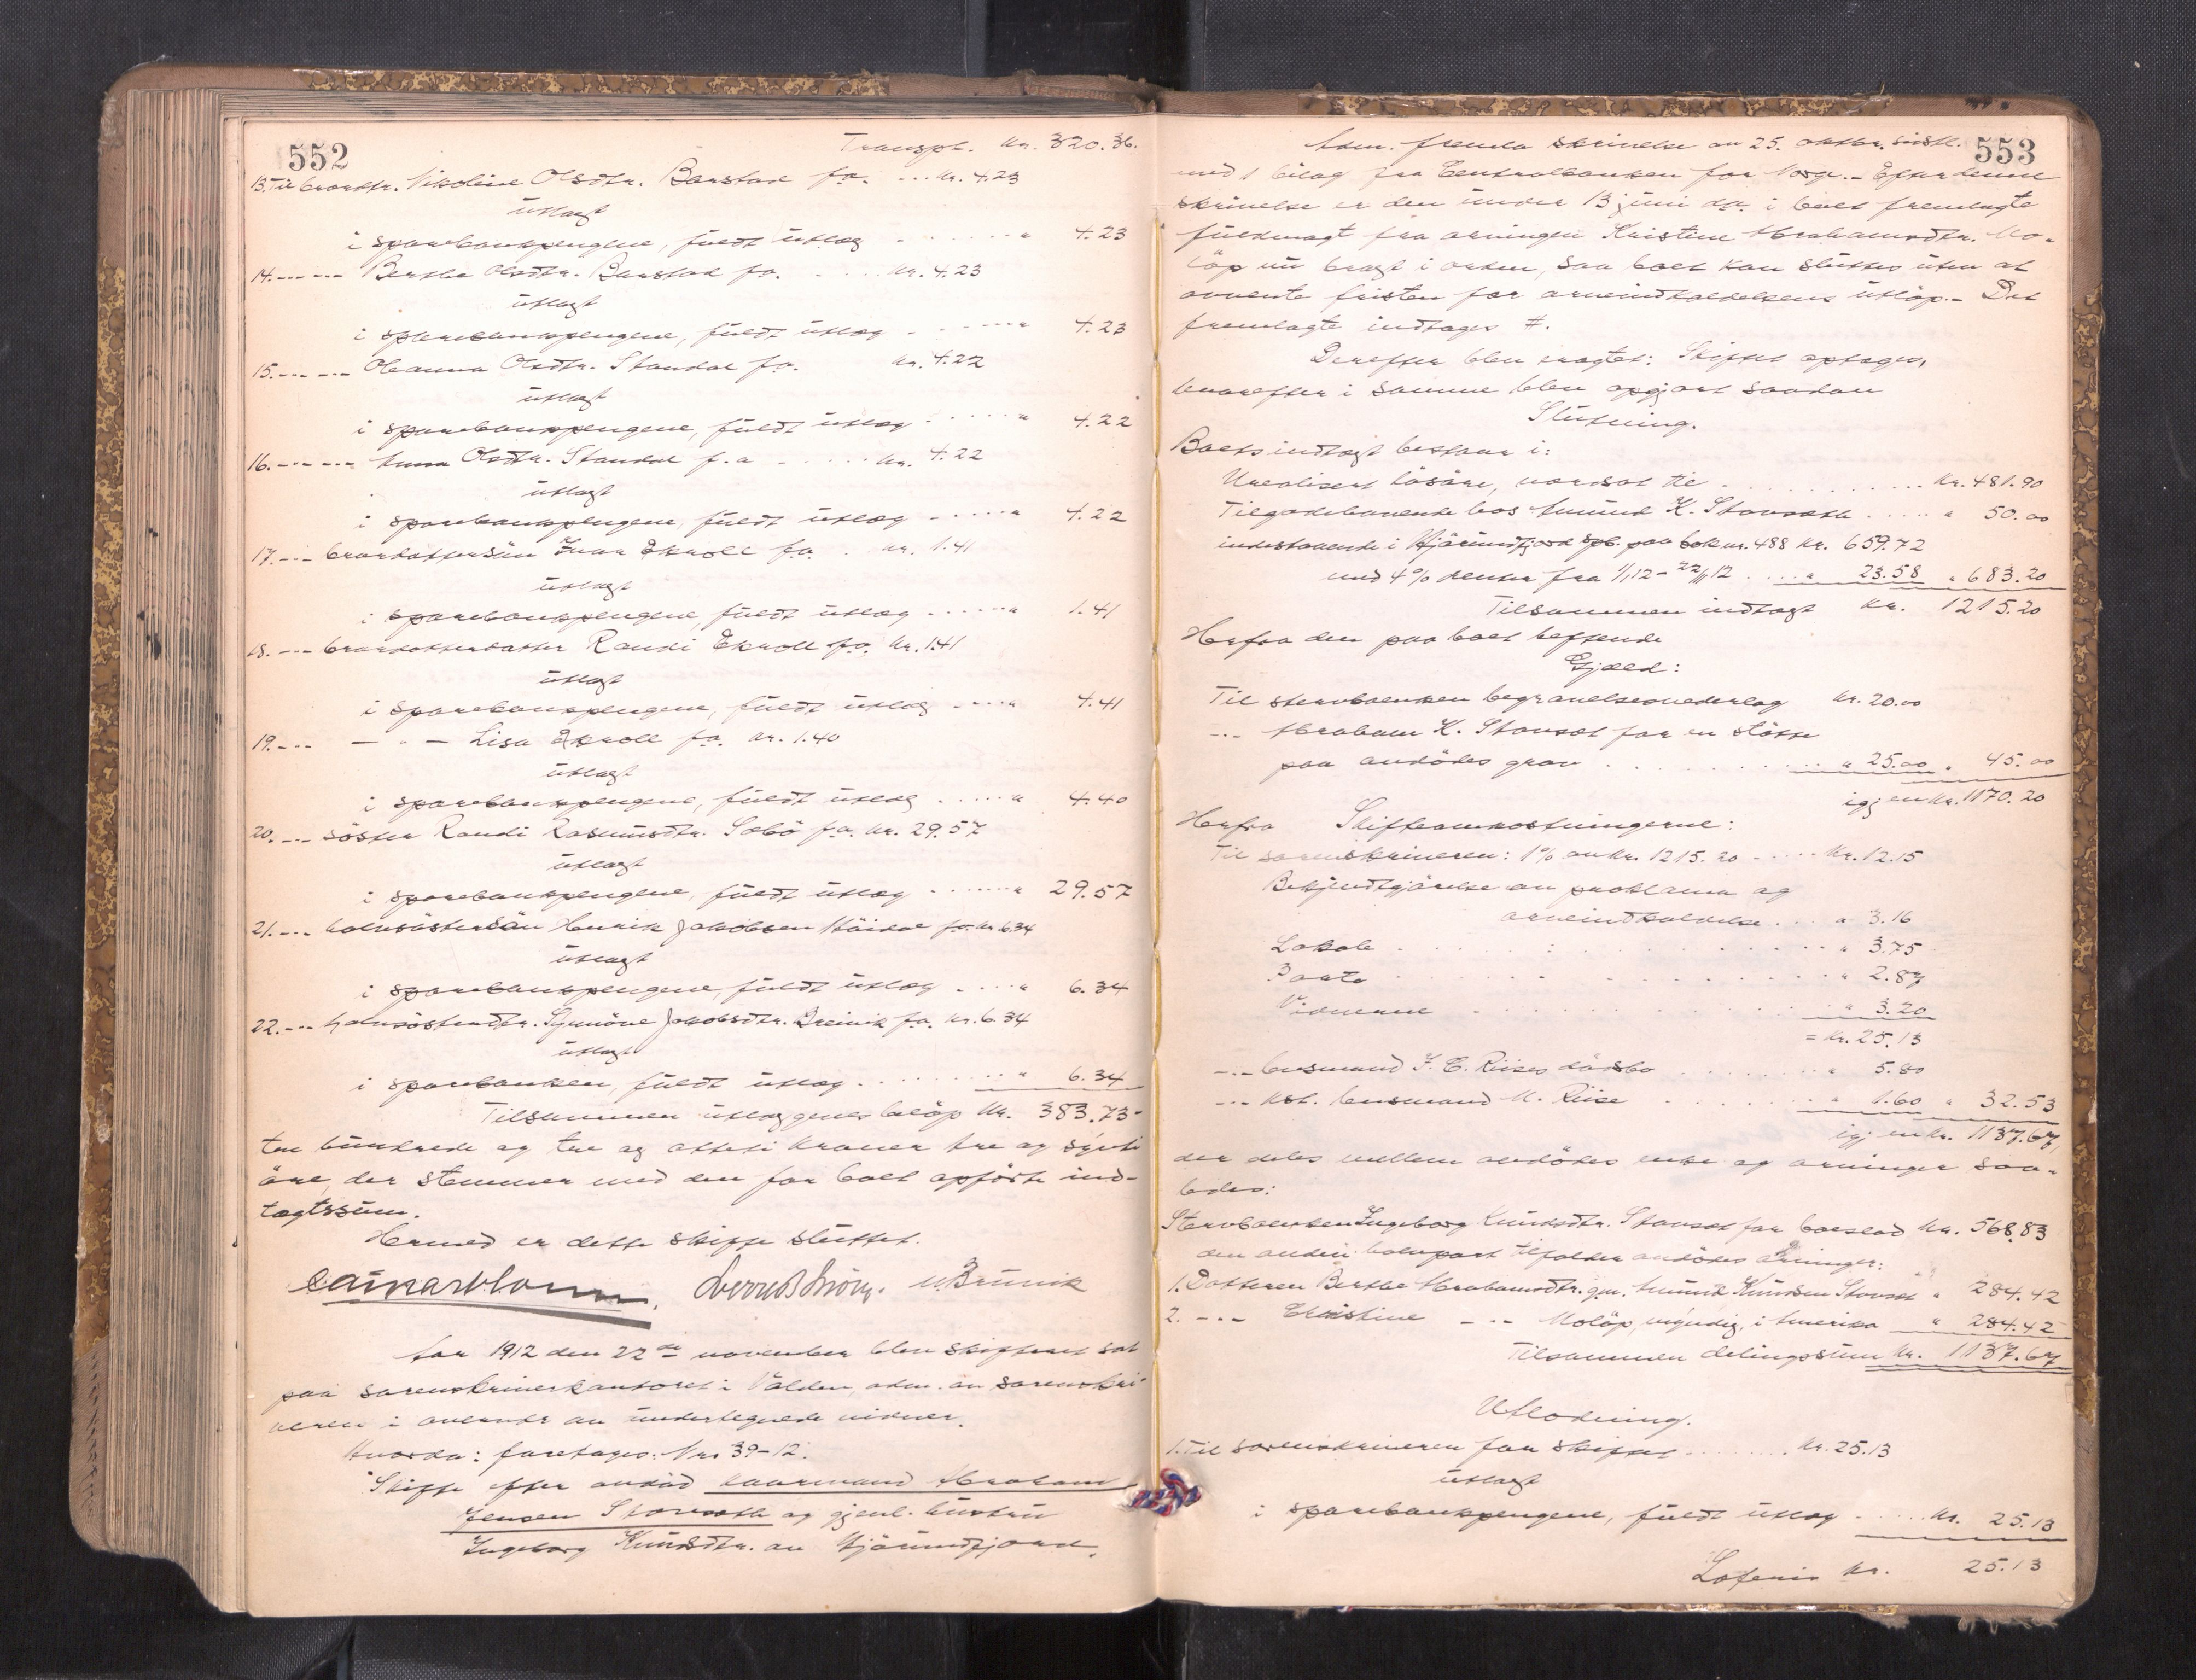 552
Transpt. kr. 320.36.
13. Til brordtr. Nikoline Olsdtr. Barstad f.o. ... kr. 4.23
utlagt
i sparebankpengene, fuldt utlæg - - - - - - " 4.23
14. --- --- Berthe Olsdtr. Barstad f.o. . . . . kr. 4.23
utlagt
i sparebankpengene, fuldt utlæg - - - - - - " 4.23
15. --- --- Oleanna Olsdtr. Standal f.o. kr. 4.22
utlagt
i sparebankpengene, fuldt utlæg - . . . . . " 4.22
16. --- --- Anna Olsdtr. Standal f.o - . . . . . kr. 4.22
utlagt
i sparebankpengene, fuldt utlæg - - - - . " 4.22
17. --- brordattersön Ivar Ekroll f.o. . kr. 1.41
utlagt
i sparebankpengene, fuldt utlæg - - . . . . " 1.41
18. --- brordatterdatter Randi Ekroll f.o. kr. 1.41
utlagt
i sparebankpengene, fuldt utlæg - - - . " 4.41
19. --- — " — Lisa Ekroll f.o. kr. 1.40
utlagt
i sparebankpengene, fuldt utlæg . . . . . " 4.40
20. --- söster Randi Rasmusdtr. Sæbö f.o. kr. 29.57
utlagt
i sparebankpengene, fuldt utlæg - . . . . . . " 29.57
21. --- halvsöstersön Henrik Jakobsen f.o. kr. 6.34
utlagt
i sparebankpengene, fuldt utlæg . . . . " 6.34
22. --- halvsösterdtr. Jakobsdtr. f.o. kr. 6.34
utlagt
i sparebanken, fuldt utlæg . . . . . . . . " 6.34
Tilsammen utlæggenes beløp kr. 383.73 -
tre hundrede og tre og otteti kroner tre og sytti
öre, der stemmer med den for boet opförte ind-
tægtssum.
Hermed er dette skifte sluttet.
M. Brunvik
Aar 1912 den 22de november blev skifteret sat
paa sorenskriverkontoret i Volden adm. av sorenskri-
veren i overvær av undertegnede vidner.
Hvorda: foretages: Nr. 39-12.
Skifte efter avdöd kaarmand Abraham
Jensen Stavseth og gjenl. hustru
Ingeborg Knudsdtr. av Hjörundfjord.
553
Adm. fremla skrivelse av 25. oktbr. sidstl.
med 1 bilag fra Centralbanken for Norge. - Efter denne
skrivelse er den under 13 juni d.a. i boet fremlagte
fuldmagt fra arvingen Kristine Abrahamsdtr. Mo-
löp nu bragt i orden, saa boet kan sluttes uten at
avvente fristen for arveindkaldelsens utlöp. - Det
fremlagte indtages #.
Derefter blev eragtet: Skiftet optages,
hvorefter i samme blev opgjort saadan
Slutning.
Boets indtægt bestaar i:
Urealisert lösöre, værdsat til . . . . . . . . . . . kr. 481.90
Tilgodehavende hos Amund K. Stavseth . . . . . " 50.00
indestaaende i Hjörundfjord spb. paa bok nr. 488 kr. 659.72
med 4% renter fra 1/1 12 - 22/11 12 . . . . " 23.58 " 683.20
Tilsammen indtægt kr. 1215.20
Herfra den paa boet heftende
Gjæld:
Til stervboenken begravelsesvederlag kr. 20.00
--- Abraham K. Stavset for en stötte
paa avdödes grav . . . . . . . . . . . " 25.00 " 45.00
igjen kr. 1170.20
Herfra Skifteomkostningerne:
Til sorenskriveren: 1% av kr. 1215.20 - . . . . kr. 12.15
Bekjendtgjörelse av proklama og
arveindkaldelse . . . " 3.16
Lokale . . . . . . . . . . . . . " 3.75
Porto . . . . . . . . . . . . . " 2.87
Vidnerne . . . . . . . . . . . . " 3.20
= kr. 25.13
--- lensmand J. E. Riises dödsbo . . . . . . . . " 5.80
--- kst. lensmand M. Riise . . . . . . . . " 1.60 " 32.53
igjen kr. 1137.67,
der deles mellem avdödes enke og arvinger saa-
ledes:
Stervboenken Ingeborg Knudsdtr. Stavset for boeslod kr. 568.83
den anden halvpart tilfalder avdödes arvinger:
1. Datteren Berthe Abrahamsdtr. g.m. Amund Knudsen Stavset " 284.42
2. --- Christine --- Molöp, myndig, i Amerika " 284.42
Tilsammen delingssum kr. 1137.67
Utlodning.
1. Til sorenskriveren for skiftet . . . . . . . . kr. 25.13
utlagt
i sparebankpengene, fuldt utlæg . . . . . kr. 25.13
Laferis kr. 25.13